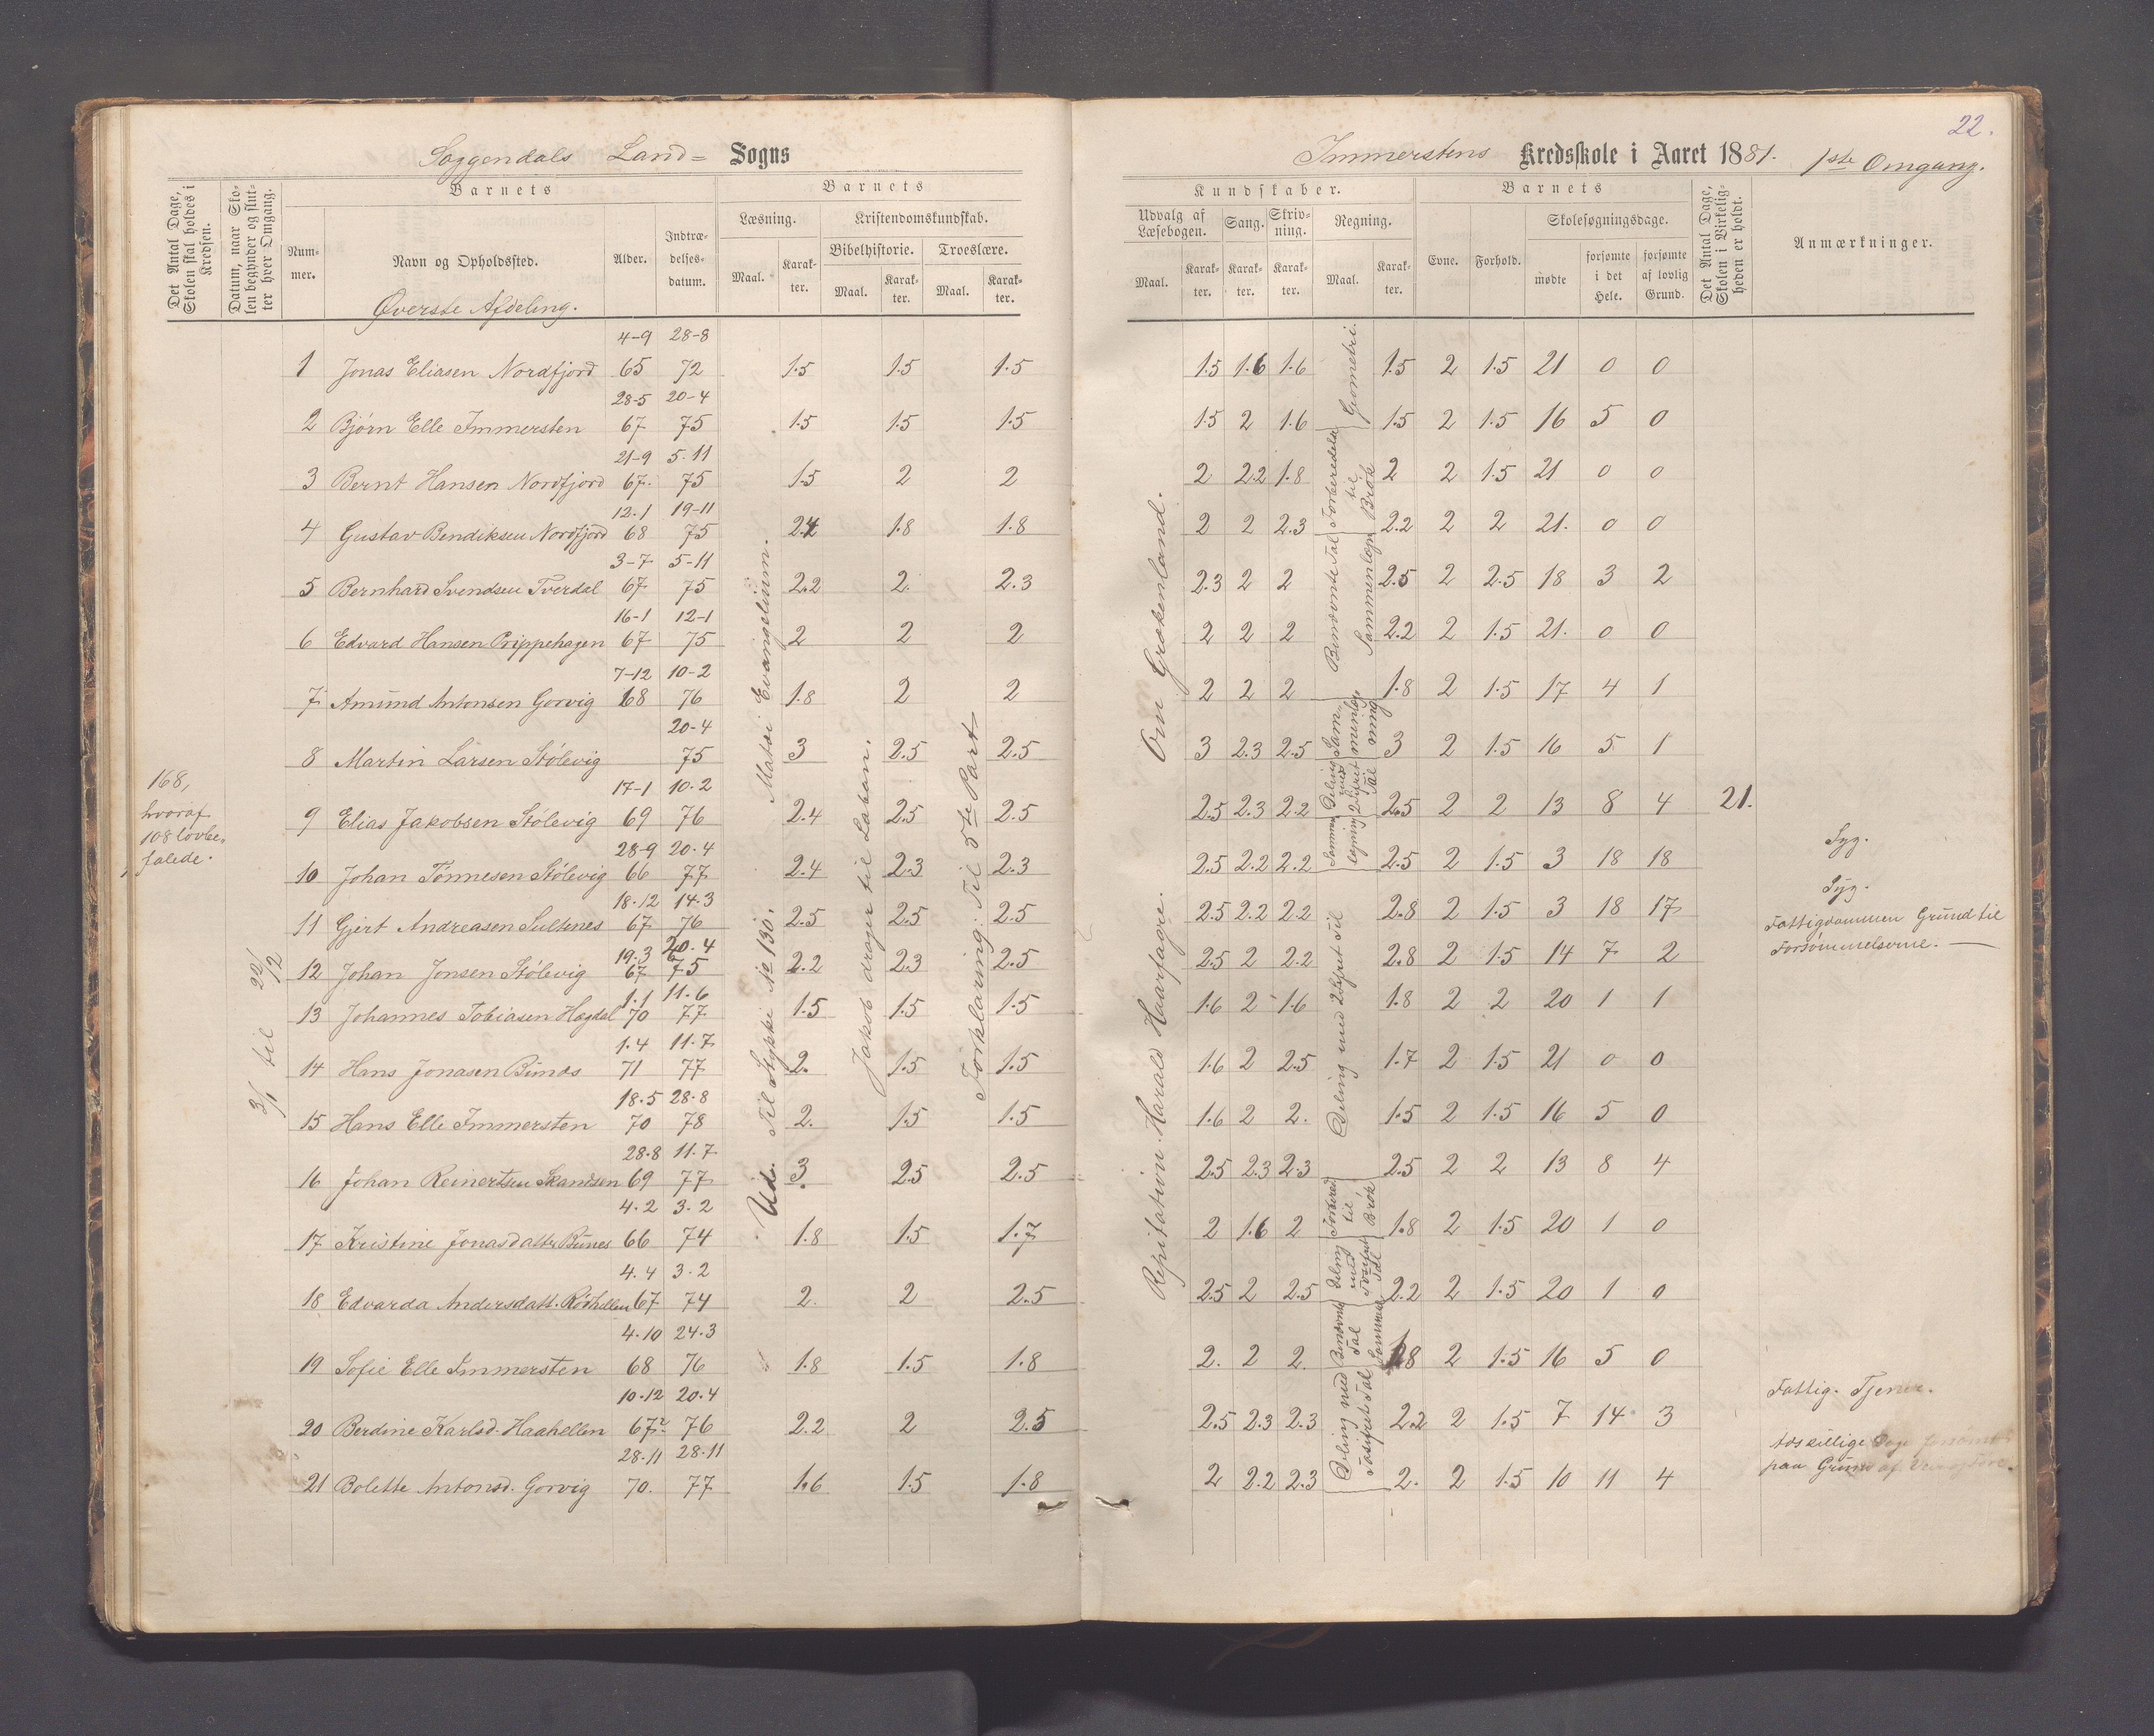 22.
Soggendals Land= Sogns
Immerstens Kredsskole i Aaret 1881. 1ste Omgang.
Det Antal Dage, Skolen skal holdes i Kredsen.
Datum, naar Skolen begynder og slutter hver Omgang.
Barnets
Nummer.
Navn og Opholdssted.
Alder.
Indtrædelsesdatum.
Barnets
Læsning.
Maal.
Karakter.
Kristendomskundskab.
Bibelhistorie.
Maal.
Karakter.
Troeslære.
Maal.
Karakter.
Kundskaber.
Udvalg af Læsebogen.
Maal.
Karakter.
Sang.
Karakter.
Skrivning.
Karakter.
Regning.
Maal.
Karakter.
Barnets
Evne.
Forhold.
Skolesøgningsdage.
mødte
forsømte i det Hele.
forsømte af lovlig Grund.
Det Antal Dage, Skolen i Virkeligheden er holdt.
Anmærkninger.
Øverste Afdeling.
4-9 28-8
1 Jonas Eliasen Nordfjord 65 72 1.5 1.5 1.5 1.5 1.6 1.6 1.5 2 1.5 21 0 0
28-5 20-4
2 Bjørn Elle Immersten 67 75 1.5 1.5 1.5 1.5 2 1.6 1.5 2 1.5 16 5 0
21-9 5.11
3 Bernt Hansen Nordfjord 67. 75 1.5 2 2 2 2.2 1.8 2 2 1.5 21 0 0
12.1 19-11
4 Gustav Bendiksen Nordfjord 68 75 2.4 1.8 1.8 2 2 2.3 2.2 2 2 21. 0 0
3-7 5-11
5 Bernhard Svendsen Tverdal 67 75 2.2 2. 2.3 2.3 2 2 2.5 2 2.5 18 3 2
16-1 12-1
6 Edvard Hansen Prippehagen 67 75 2 2 2 2 2 2 2.2 2 1.5 21. 0 0
7-12 10-2
7 Amund Antonsen Gorvig 68 76 1.8 2 2 2 2 2 1.8 2 1.5 17 4 1
20-4
8 Martin Larsen Stølevig 75 3 2.5 2.5 3 2.3 2.5 3 2 1.5 16 5 1
17-1 10.2
9 Elias Jakobsen Stølevig 69 76 2.4 2.5 2.5 2.5 2.3 2.2 2.5 2 2 13 8 4 21.
28-9 20.4
10 Johan Tønnesen Stølevig 66 77 2.4 2.3 2.3 2.5 2.2 2.2 2.5 2 1.5 3 18 18 Syg.
18.12 14.3
11 Gjert Andreasen Sultenes 67 76 2.5 2.5 2.5 2.5 2.2 2.2 2.8 2 1.5 3 18 17 Syg.
Fattigdommen Grund til
Forsømmelserne.
19.3 20.4
12 Johan Jonsen Stølevig 67 75 2.2 2.3 2.5 2.5 2 2.2 2.8 2 1.5 14 7 2
1.1 11.6
13 Johannes Tobiasen Hægdal 70 77 1.5 1.5 1.5 1.6 2 1.6 1.8 2 2 20 1 1
1.4 11.7
14 Hans Jonasen Bunes 71 77 2. 1.5 1.5 1.6 2 2.5 1.7 2 1.5 21 0 0
18.5 28.8
15 Hans Elle Immersten 70 78 2. 1.5 1.5 1.6 2 2. 1.5 2 1.5 16 5 0
28.8 11.7
16 Johan Reinertsen Skandsen 69 77 3. 2.5 2.5 2.5 2.3 2.3 2.5 2 2 13 8 4
4.2 3.2
17 Kristine Jonasdatter Bunes 66 74 1.8 1.5 1.7 2 1.6 2 1.8 2 1.5 20 1 0
4.4 3.2
18 Edvarda Andersdatt. Rødhellen 67 74 2. 2 2.5 2.5 2 2.5 2.2 2 1.5 20 1 0
4.10 24.3
19 Sofie Elle Immersten 68 76 1.8 1.5 1.8 2. 2 2. 1.8 2 1.5 16 5 0
10.12 20.4
20 Berdine Karlsd. Haahellen 67 76 2.2 2 2.5 2.5 2.3 2.3 2.2 2 1.5 7 14 3 Fattig.
28.11 28.11
21 Bolette Antonsd. Gorvig 70. 77 1.6 1.5 1.8 2 2.2 2.3 2. 2 1.5 10 11 4 Adskillige
paa Grund af
168,
hvoraf
108 lovbe=
falede.
3/1 til 22/12
Ud. Til Stykke No 130. Matæi Evangelium.
Jakob drager til Laban.
Forklaring. Til 5te Part
Repitation. Harald Haarfagre. Om Grækenland.
Geometri.
Forberedelse til Brøk
Benævnte Tal Sammenlægn
Sammenlægning
Deling med 2cifret Tal
Sammenlægning
Deling med 2cifret Til
Forbered til Brøk
Deling med Tocifret Tal
Benævnte Tal
Deling med Tocifret Tal